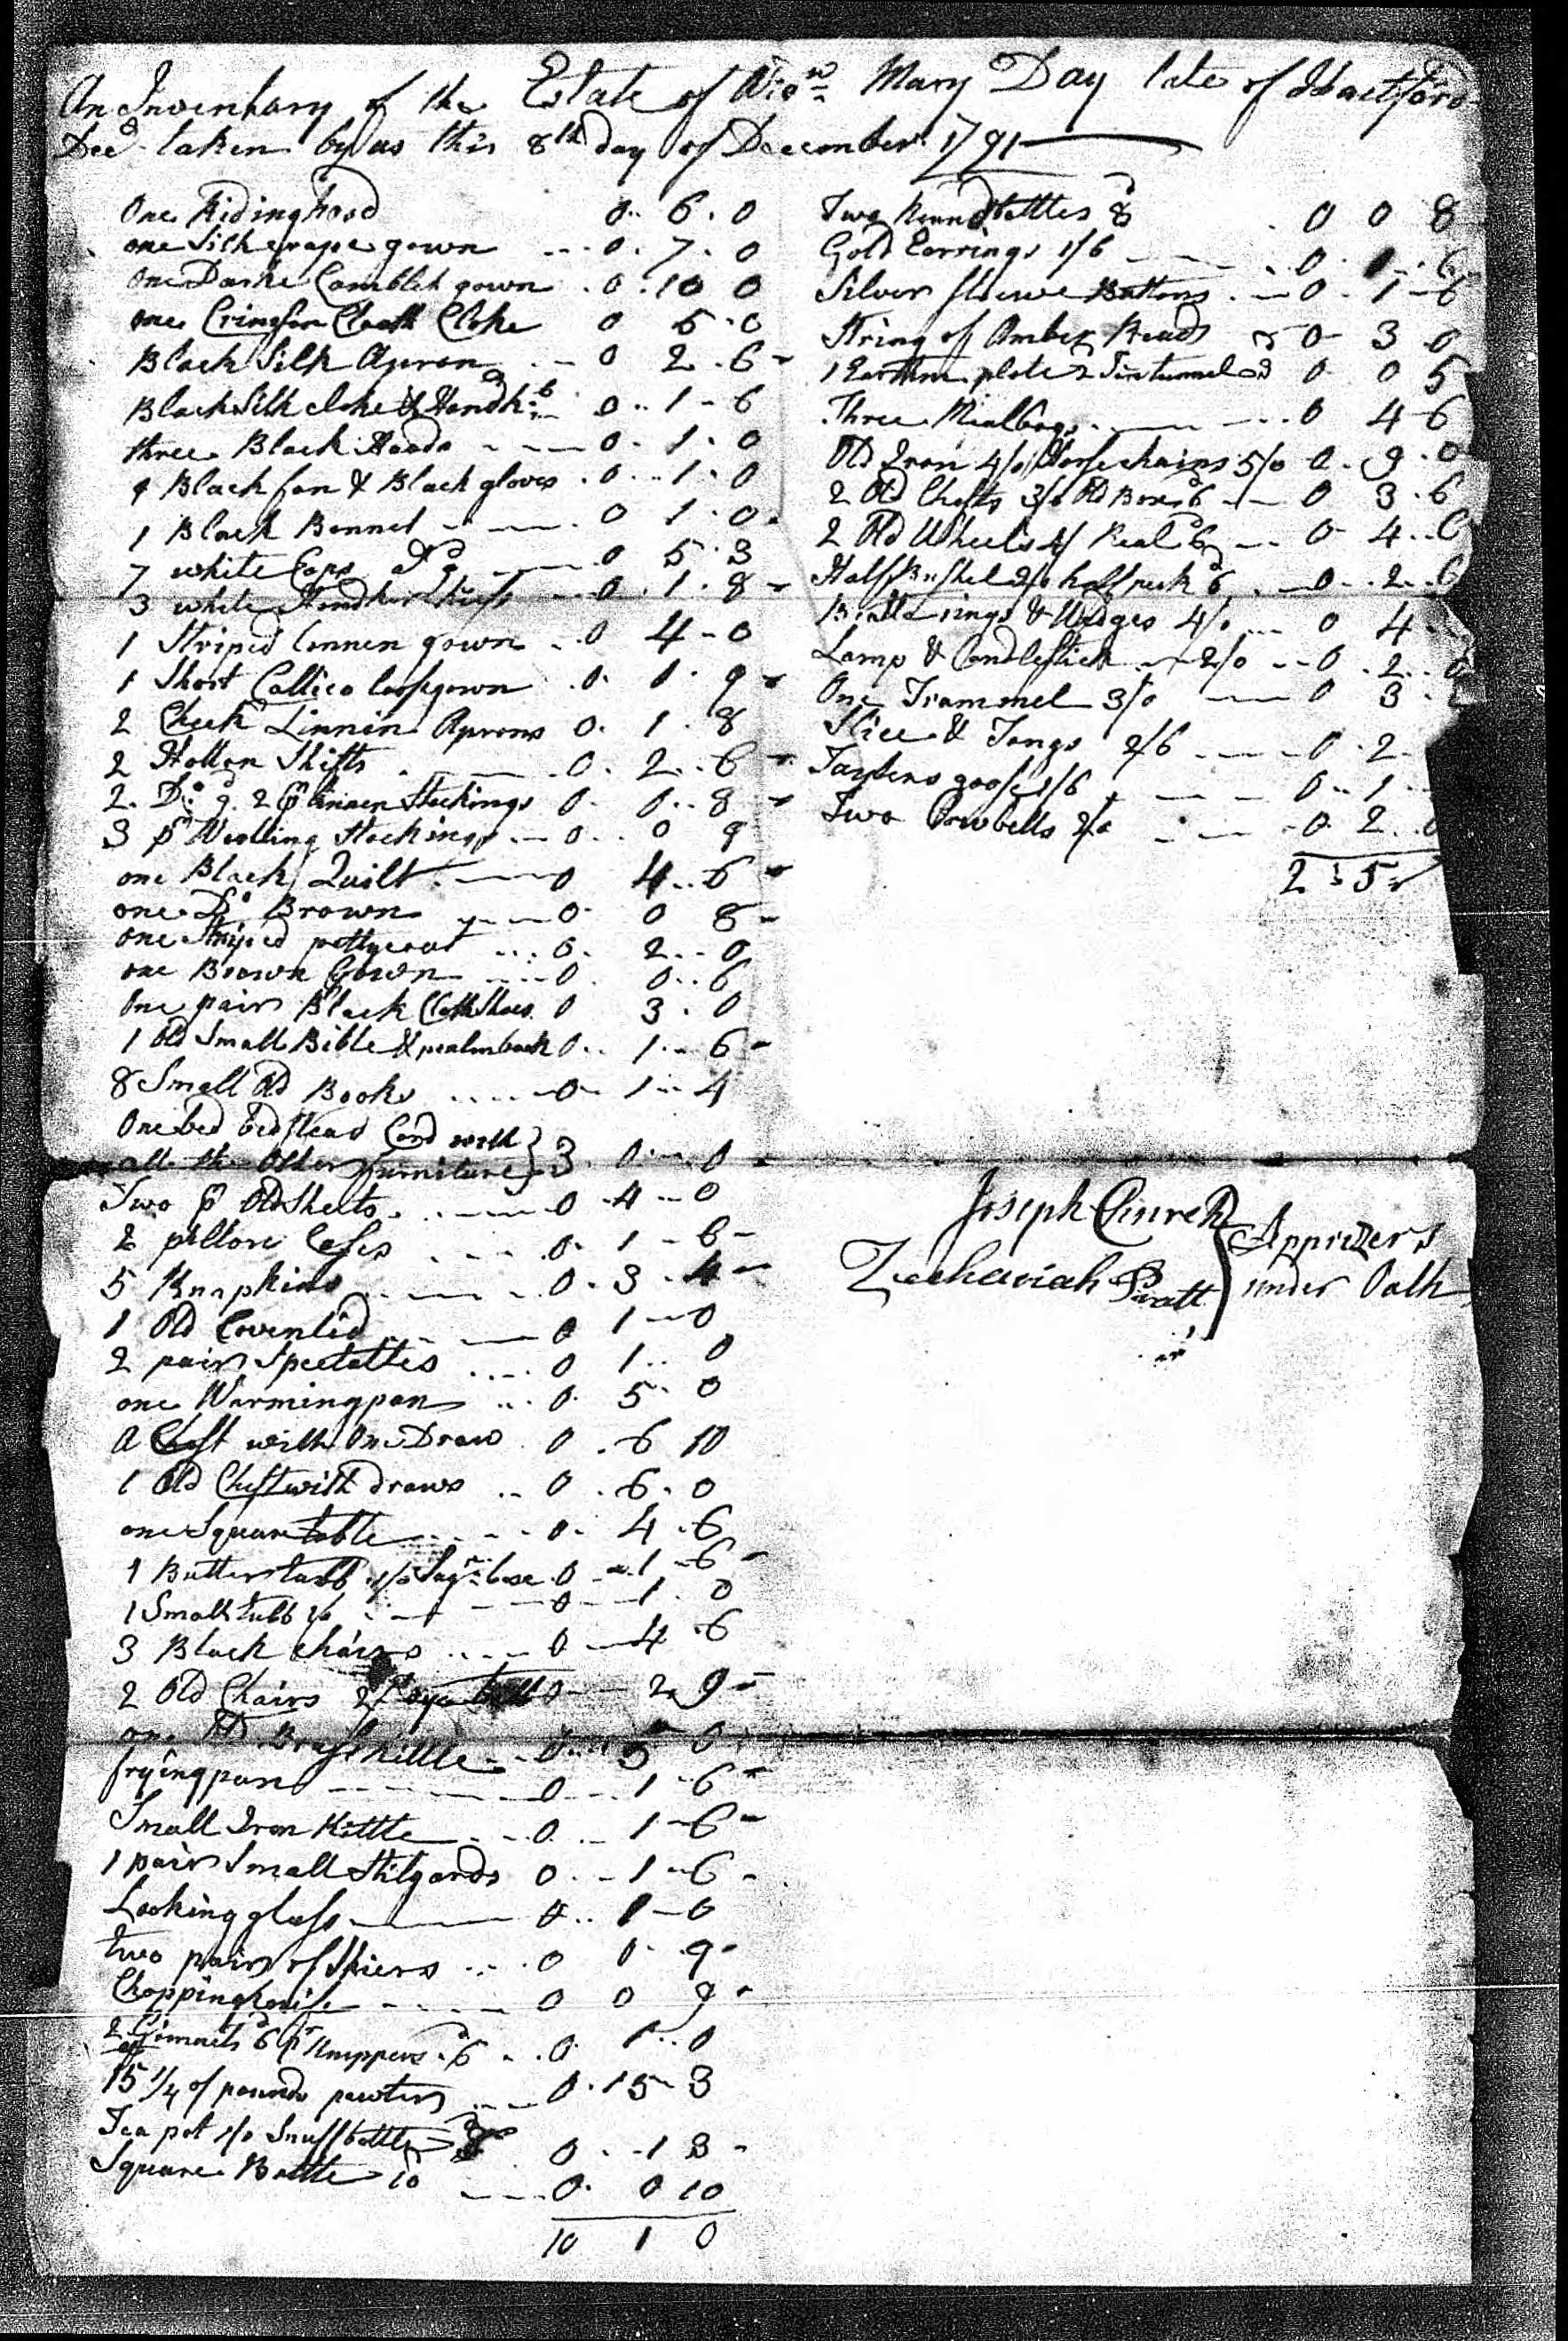 An Inventary of the Estate of Widw Mary Day late of Hartford
Decd taken by us this 8th day of December 1791
One Ridinghood 0 6 0
one Silk crape gown 0 7 0
One Darke Camblet gown 0 10 0
one Crimson Cloath Cloke 0 5 0
Black Silk Apron 0 2 6
Black Silk cloke & Handk 0 1 6
three Black Hoods 0 1 0
1 Black fan & Black gloves 0 1 0
1 Black Bonnet 0 1 0
7 white Caps 0 5 3
3 white Handkerchiefs 0 1 8
1 Striped linnen gown 0 4 0
1 Short Callico loosgown 0 1 9
2 Check Linnin Aprons 0 1 8
2 Hollon Shifts 0 2 6
2 Do 2 pr linnen Stockings 0 0 8
3 pr Woolling Stockings 0 0 9
one Black Quilt 0 4 6
one Do Brown 0 0 8
one Striped pettycoat 0 2 0
one Brown Gown 0 0 6
One pair Black Cloth Shoes 0 3 0
1 Old Small Bible & psalmbook 0 1 6
8 Small Old Books 0 1 4
One bed bedstead Cord with
all the Other furniture } 3 0 0
Two pr Old Sheets 0 4 0
2 pillow Cases 0 1 6
5 Knapkins 0 3 4
1 Old Coverlid 0 1 0
2 pair Spectakles 0 1 0
one Warmingpan 0 5 0
A Chest with One Draw 0 6 10
1 Old Chest with draws 0 6 0
one Square table 0 4 6
1 Butter tubb 1/0 Sugr box 0 1 6
1 Small tubb 1/0 0 1 0
3 Black chairs 0 4 6
2 Old Chairs 2/ 0 2 9
one Old Brass kittle 0 5 0
fryingpan 0 1 6
Small Iron Kittle 0 1 6
1 pair Small Stilyards 0 1 6
Looking glass 0 1 0
two pair of Shiers 0 1 9
Chopping knife 0 0 9
2 Gimnets 6d pr Knippers 6d 0 1 0
15 1/4 of pounds pewter 0 15 3
Tea pot 1/0 Snuffbottle 0 1 3
Square Bottle 10d 0 0 10
10 1 0
Two Round bottles 8d 0 0 8
Gold Earrings 1/6 0 1 6
Silver Sleeve Buttons 0 1 6
String of Amber Beads 0 3 0
1 Earthen plate & Tin tunnel 0 0 5
Three Mealbags 0 4 6
Old Iron 4/0 Horse chains 5/0 0 9 0
2 Old Chests 3/0 Old Box 6d 0 3 6
2 Old Wheels 4/ Real 6d 0 4 6
Half Bushel 2/0 half peck 6d 0 2 6
Beetle rings & Wedges 4/0 0 4
Lamp & Candlestick 2/0 0 2 0
One Trammel 3/0 0 3
Slice & Tongs 2/6 0 2
Taylers goose 1/6 0 1
Two Cowbells 2/0 0 2 0
2 5
Joseph Church
Zechariah Pratt } Apprizers
under Oath